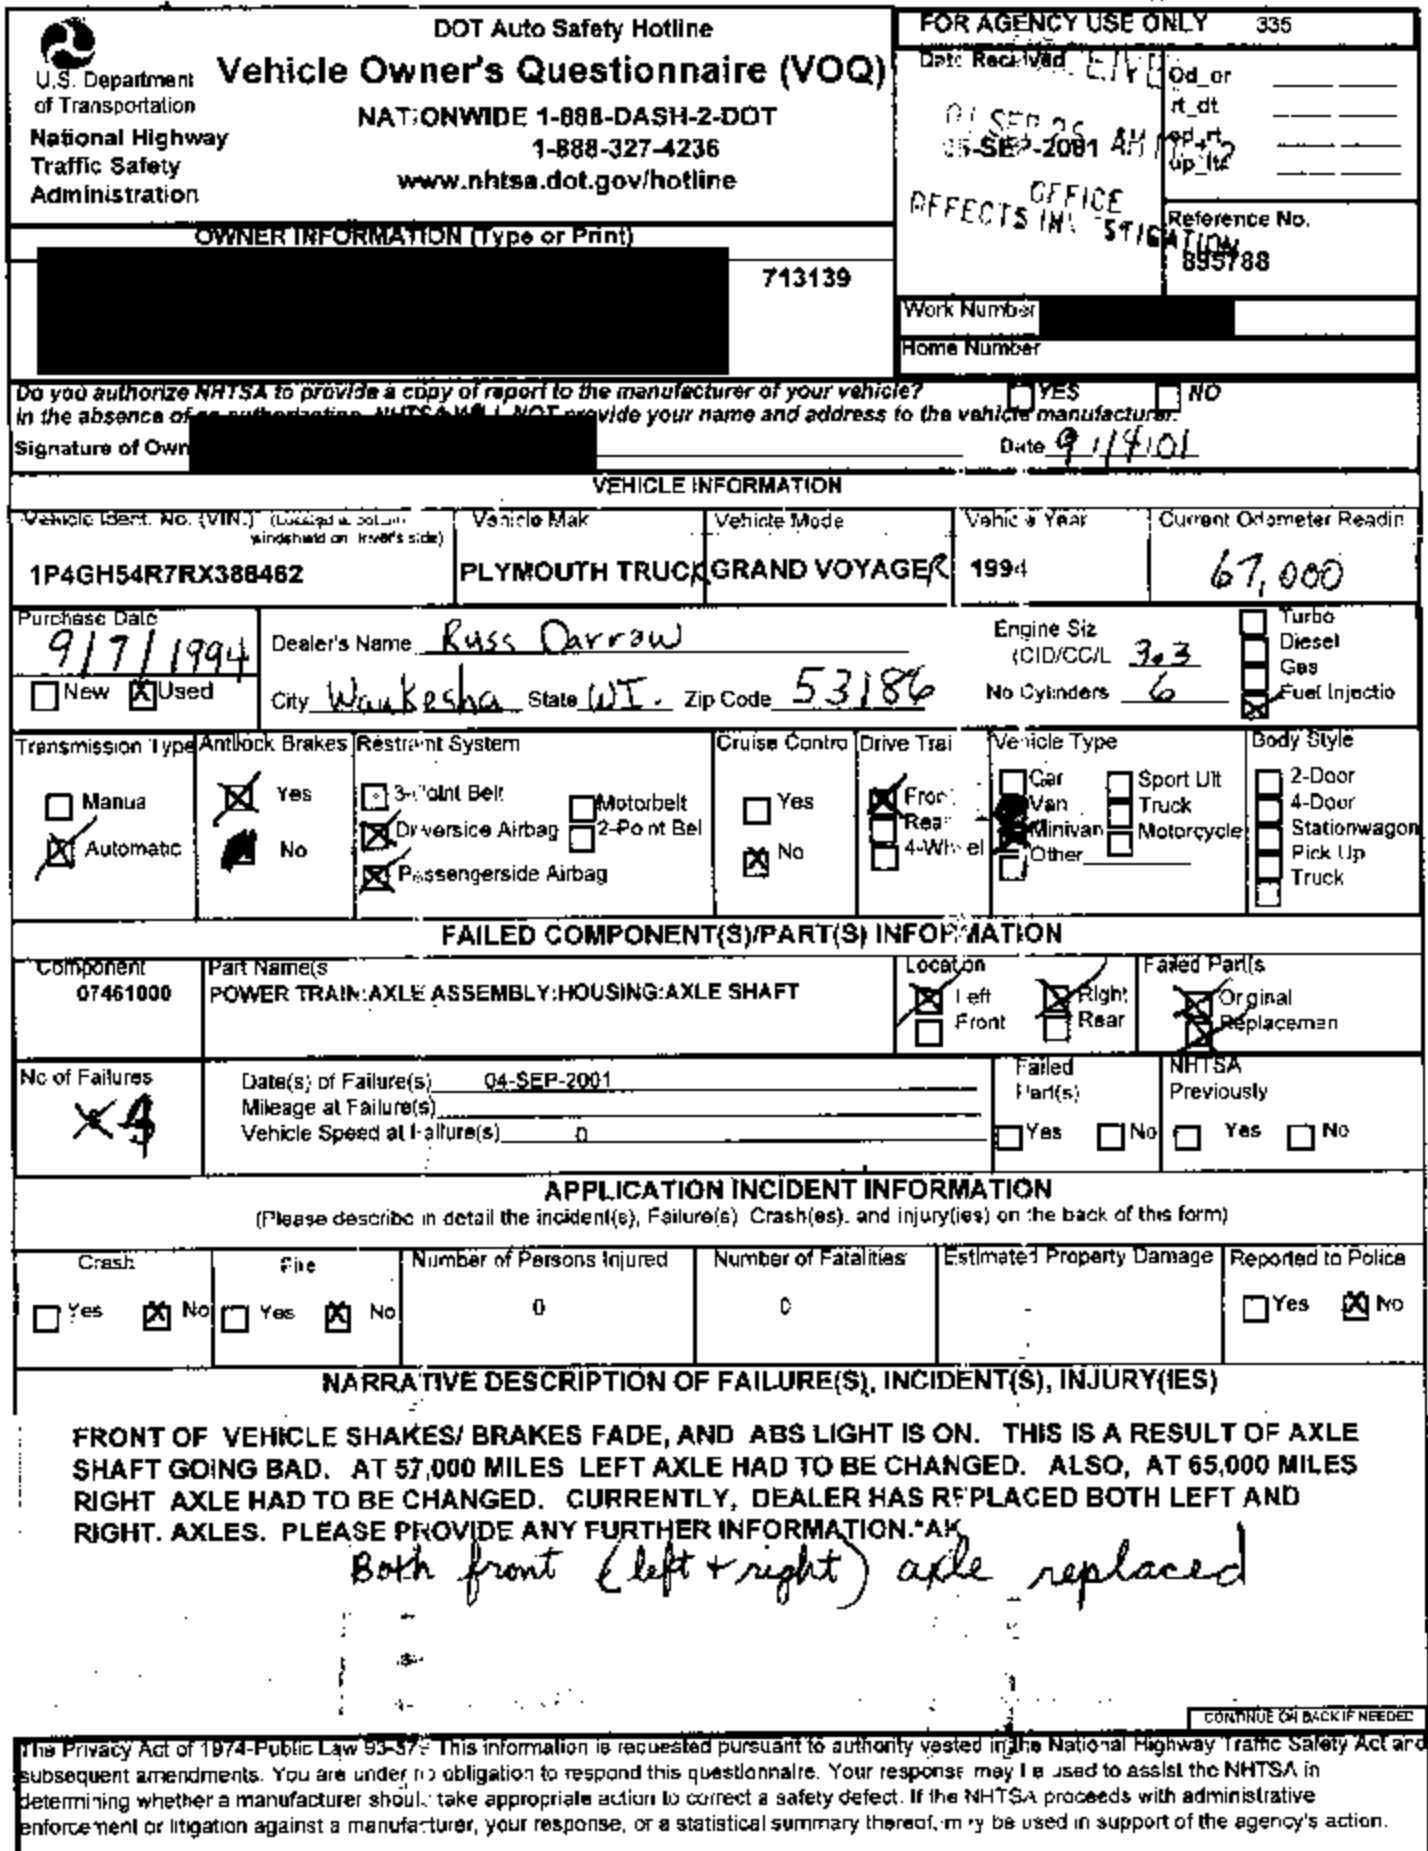 DOT Auto Safety Hotline
Vehicle Owner's Questionnaire (VOQ)
NATIONWIDE 1-888-DASH-2-DOT
1-888-327-4236
www.nhtsa.dot.gov/hotline
U.S. Department
of Transportation
National Highway
Traffic Safety
Administration
FOR AGENCY USE ONLY 335
Date Received
Od_or
rt_dt
od_rt
up_ltr
-SEP-2001
OFFICE
Reference No.
895788
OWNER INFORMATION (Type or Print)
713139
Work Number
Home Number
Do you authorize NHTSA to provide a copy of report to the manufacturer of your vehicle? YES NO
In the absence of an authorization, NHTSA WILL NOT provide your name and address to the vehicle manufacturer.
Signature of Own Date 9/14/01
VEHICLE INFORMATION
Vehicle Ident. No. (VIN.) (Located at bottom
windshield on driver's side)
1P4GH54R7RX386462
Vehicle Mak
PLYMOUTH TRUCK
Vehicle Mode
GRAND VOYAGER
Vehicle Year
1994
Current Odometer Readin
67,000
Purchase Date
9/7/1994
New X Used
Dealer's Name Russ Darrow
City Waukesha State WI. Zip Code 53186
Engine Siz
(CID/CC/L 3.3
No Cylinders 6
Turbo
Diesel
Gas
Fuel Injectio
Transmission Type
Manua
Automatic
Antilock Brakes
Yes
No
Restraint System
3-Point Belt
Driverside Airbag
Passengerside Airbag
Motorbelt
2-Point Bel
Cruise Contro
Yes
No
Drive Trai
Front
Rear
4-Wheel
Vehicle Type
Car
Van
Minivan
Other
Sport Ult
Truck
Motorcycle
Body Style
2-Door
4-Door
Stationwagon
Pick Up
Truck
FAILED COMPONENT(S)/PART(S) INFORMATION
Component
07461000
Part Name(s
POWER TRAIN:AXLE ASSEMBLY:HOUSING:AXLE SHAFT
Location
Left Right
Front Rear
Failed Part(s
Original
Replacemen
No of Failures
Date(s) of Failure(s) 04-SEP-2001
Mileage at Failure(s)
Vehicle Speed at Failure(s) 0
Failed
Part(s)
Yes No
NHTSA
Previously
Yes No
APPLICATION INCIDENT INFORMATION
(Please describe in detail the incident(s), Failure(s) Crash(es), and injury(ies) on the back of this form)
Crash
Yes X No
Fire
Yes X No
Number of Persons Injured
0
Number of Fatalities
0
Estimated Property Damage
-
Reported to Police
Yes X No
NARRATIVE DESCRIPTION OF FAILURE(S), INCIDENT(S), INJURY(IES)
FRONT OF VEHICLE SHAKES/ BRAKES FADE, AND ABS LIGHT IS ON. THIS IS A RESULT OF AXLE
SHAFT GOING BAD. AT 57,000 MILES LEFT AXLE HAD TO BE CHANGED. ALSO, AT 65,000 MILES
RIGHT AXLE HAD TO BE CHANGED. CURRENTLY, DEALER HAS REPLACED BOTH LEFT AND
RIGHT. AXLES. PLEASE PROVIDE ANY FURTHER INFORMATION.*AK
Both front (left + right) axle replaced
CONTINUE ON BACK IF NEEDED
The Privacy Act of 1974-Public Law 93-579 This information is requested pursuant to authority vested in the National Highway Traffic Safety Act and
subsequent amendments. You are under no obligation to respond this questionnaire. Your response may be used to assist the NHTSA in
determining whether a manufacturer should take appropriate action to correct a safety defect. If the NHTSA proceeds with administrative
enforcement or litigation against a manufacturer, your response, or a statistical summary thereof, may be used in support of the agency's action.